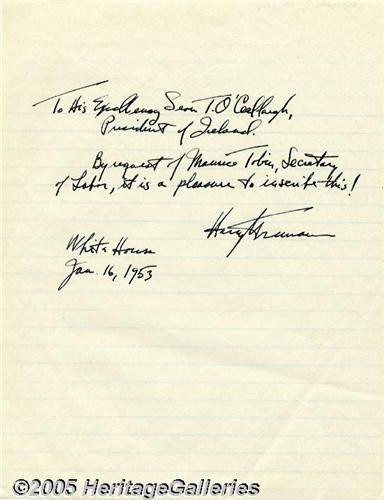 To His Excellency Sean T. O'Ceallaigh,
President of Ireland.
By request of Maurice Tobin, Secretary
of Labor, it is a pleasure to inscribe this!
Harry Truman
White House
Jan. 16, 1953
©2005 HeritageGalleries